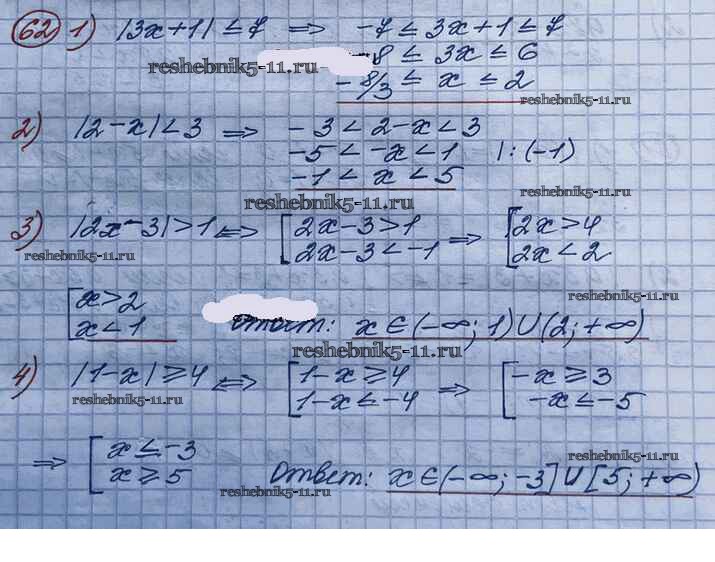 62) 1) |3x+1| ≤ 7 => -7 ≤ 3x+1 ≤ 7
reshebnik5-11.ru -8 ≤ 3x ≤ 6
-8/3 ≤ x ≤ 2
reshebnik5-11.ru
2) |2-x| < 3 => -3 < 2-x < 3
-5 < -x < 1 |:(-1)
-1 < x < 5
reshebnik5-11.ru
reshebnik5-11.ru
3) |2x-3| > 1 <=> [ 2x-3 > 1 => [ 2x > 4
2x-3 < -1 2x < 2
reshebnik5-11.ru
reshebnik5-11.ru
[ x > 2
x < 1 Ответ: x ∈ (-∞; 1) ∪ (2; +∞)
reshebnik5-11.ru
4) |1-x| ≥ 4 <=> [ 1-x ≥ 4 => [ -x ≥ 3
1-x ≤ -4 -x ≤ -5
reshebnik5-11.ru
reshebnik5-11.ru
=> [ x ≤ -3
x ≥ 5 Ответ: x ∈ (-∞; -3] ∪ [5; +∞)
reshebnik5-11.ru